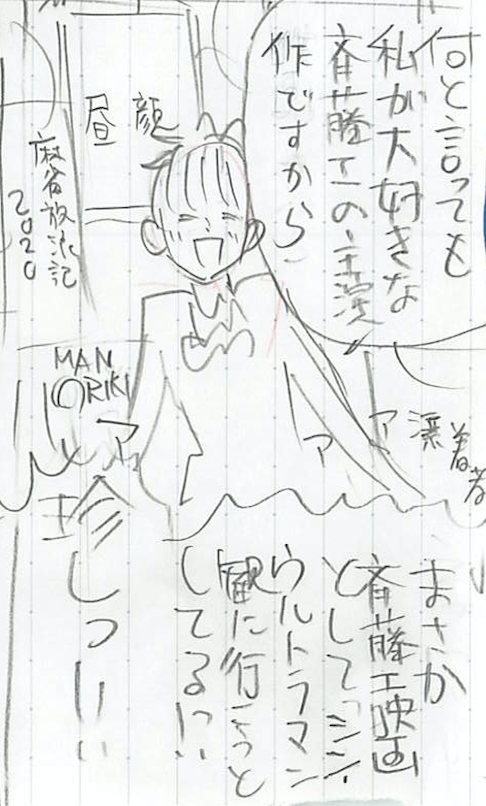 何と言っても
私が大好きな
斉藤工の主演
作ですから
昼顔
麻雀放浪記
2020
MAN
RIKI
漂着者
アアア
まさか
斉藤工映画
として
ウルトラマン
観に行こうと
してるに
珍しつ